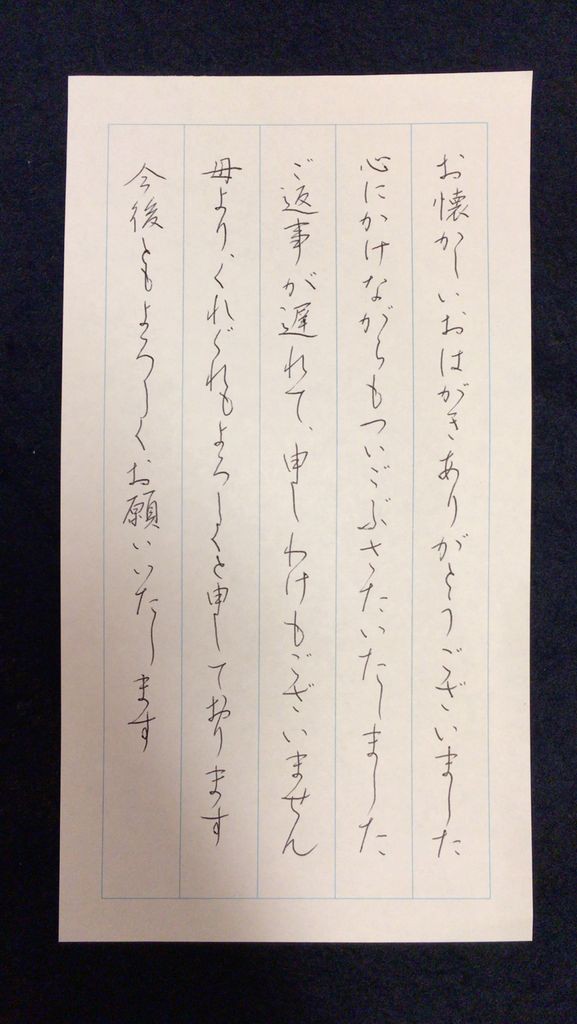 お懐かしいおはがきありがとうございました
心にかけながらもついごぶさたいたしました
ご返事が遅れて、申しわけもございません
母より、くれぐれもよろしくと申しております
今後ともよろしくお願いいたします